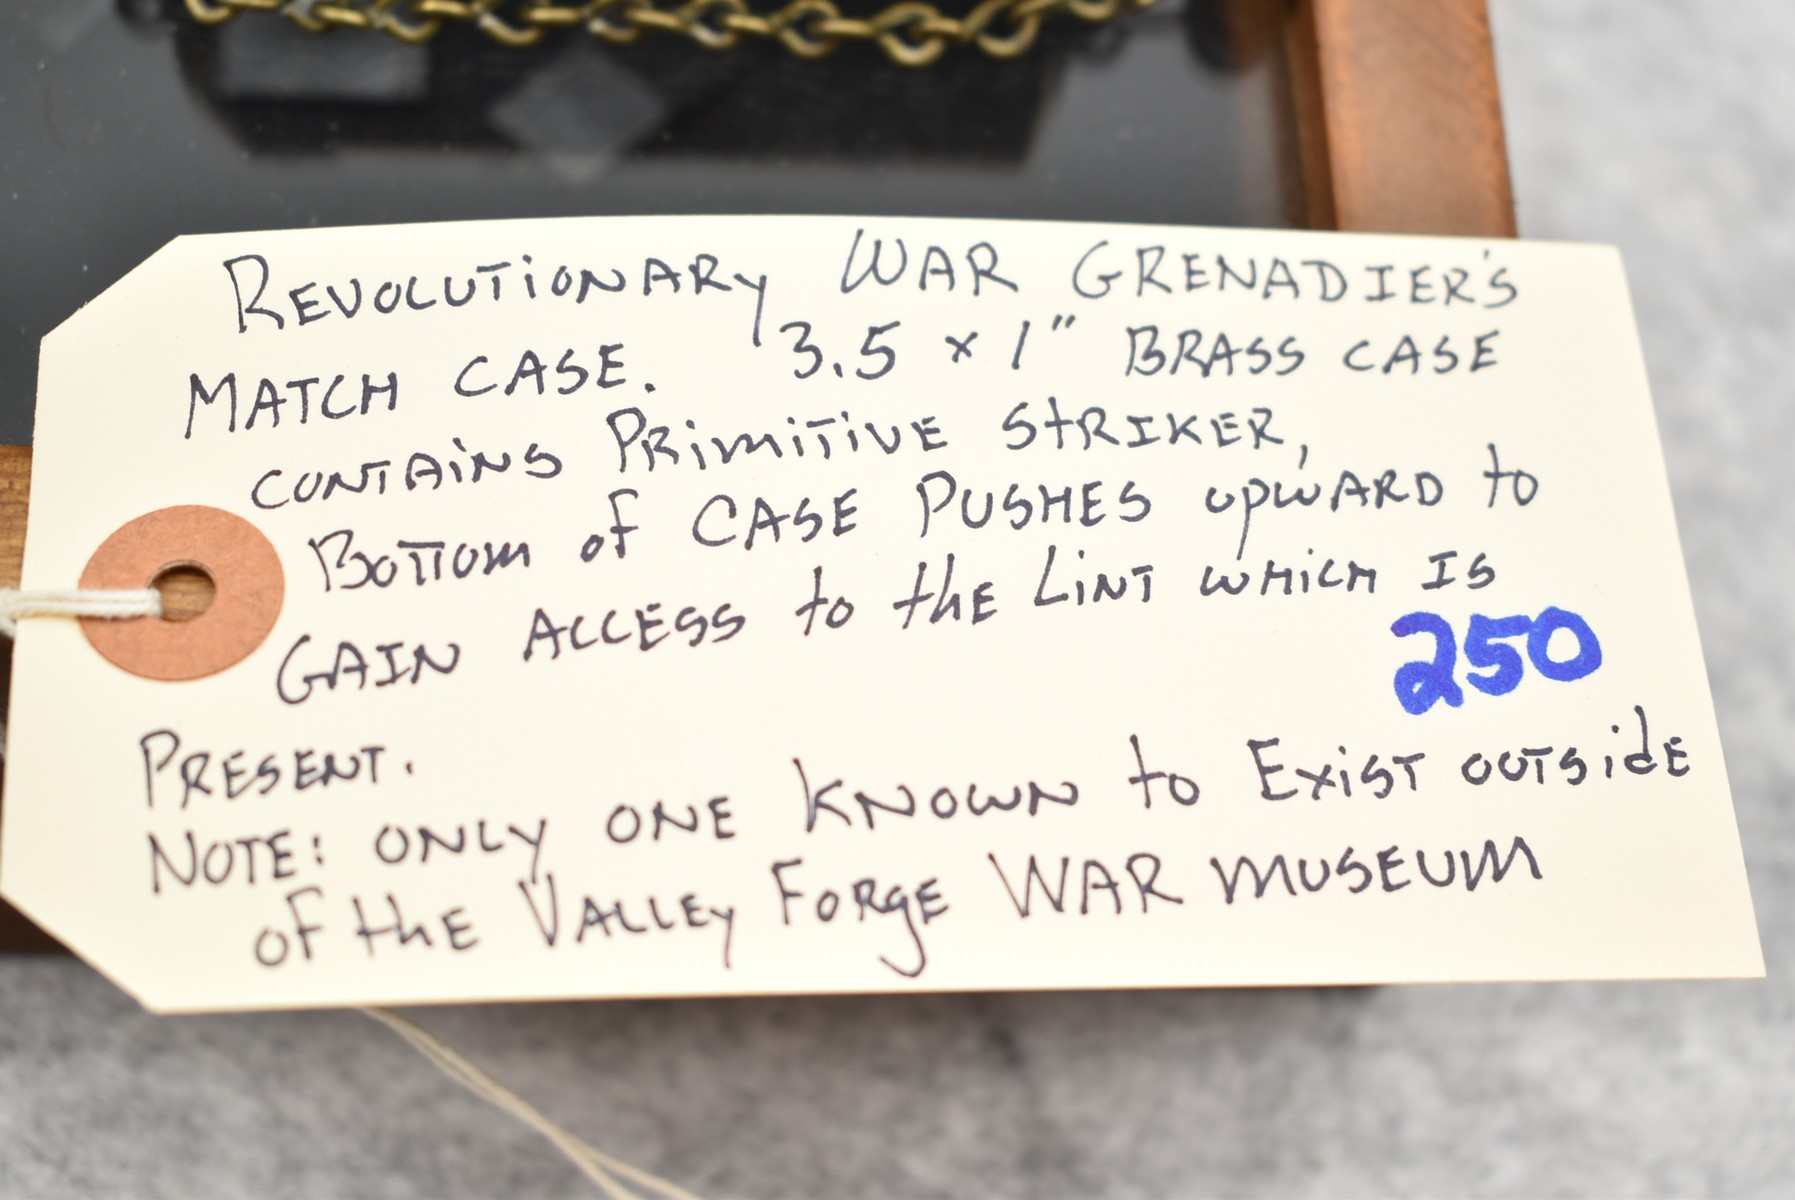 REVOLUTIONARY WAR GRENADIER'S
MATCH CASE. 3.5 x 1" BRASS CASE
CONTAINS PRIMITIVE STRIKER,
BOTTOM of CASE PUSHES UPWARD to
GAIN ACCESS to the LINT WHICH IS
250
PRESENT.
NOTE: ONLY ONE KNOWN to EXIST OUTSIDE
of the VALLEY FORGE WAR MUSEUM